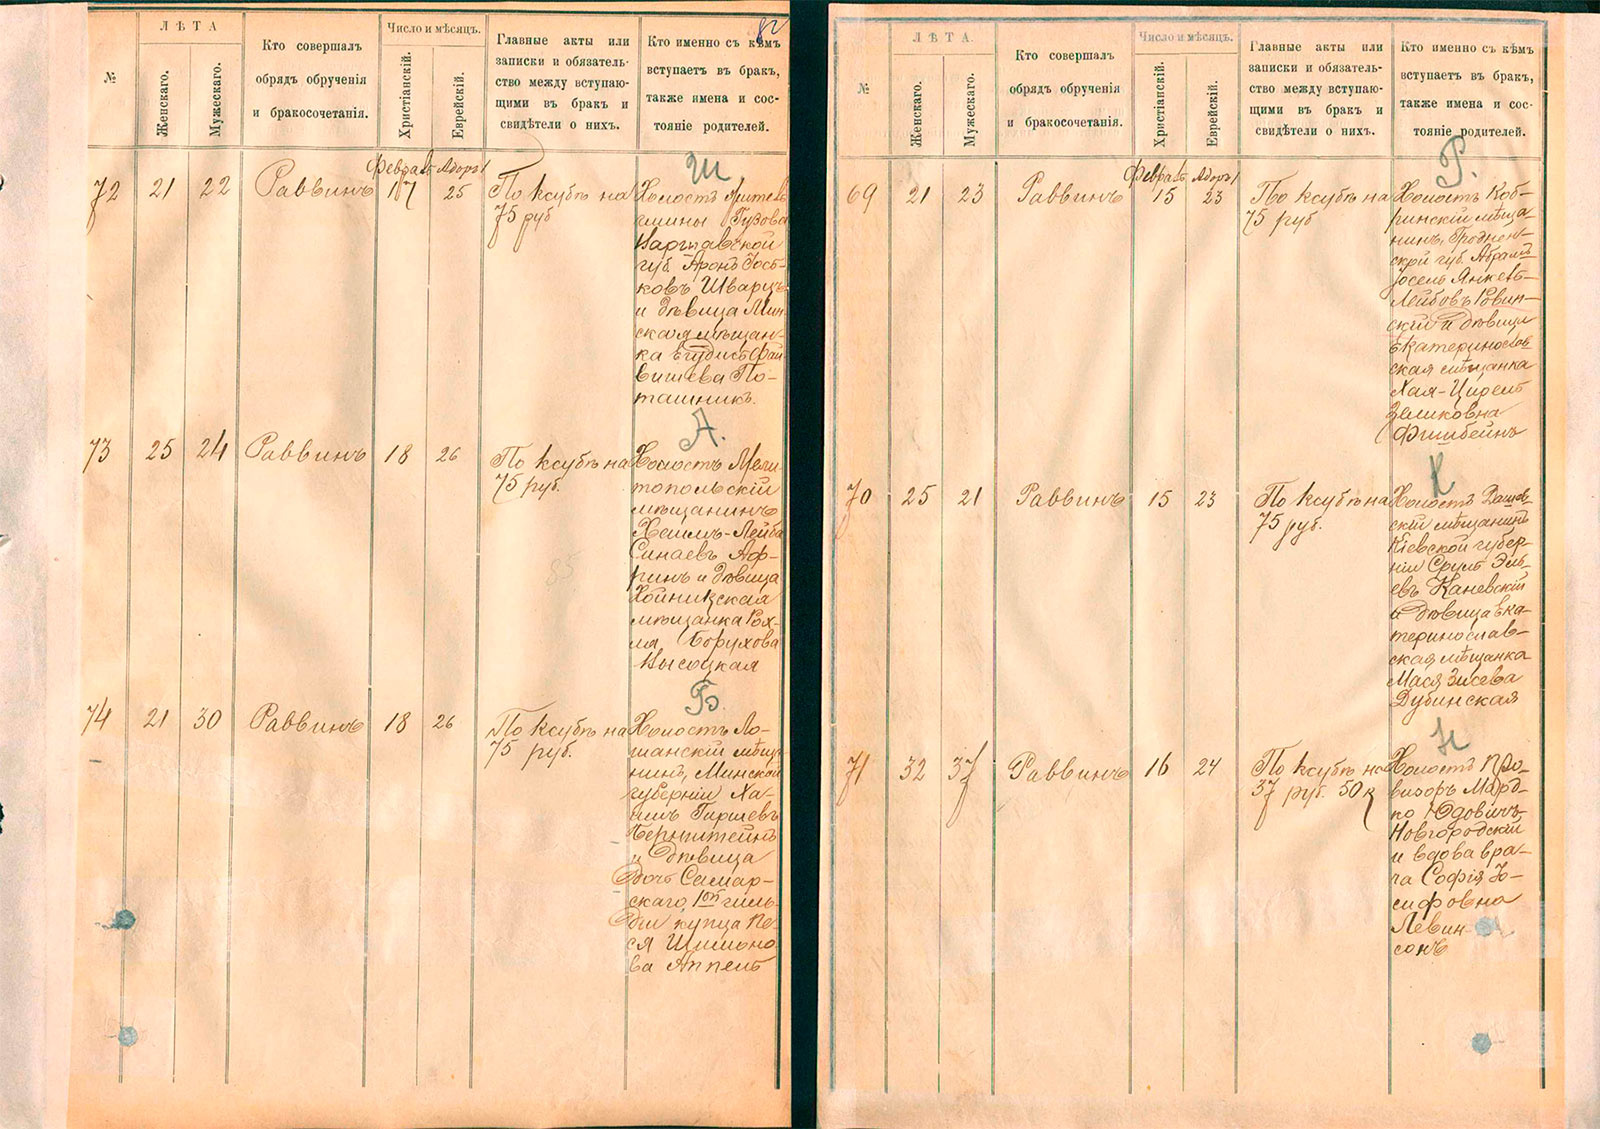 82
№
ЛѢТА
Женскаго.
Мужескаго.
Кто совершалъ
обрядъ обрученія
и бракосочетанія.
Число и мѣсяцъ.
Христіанскій.
Еврейскій.
Главные акты или
записки и обязатель-
ство между вступаю-
щими въ бракъ и
свидѣтели о нихъ.
Кто именно съ кѣмъ
вступаетъ въ бракъ,
также имена и сос-
тояніе родителей.
Февраль Адоръ I
Ш
72 21 22 Раввинъ 17 25
По ксубѣ на
75 руб
Холостъ житель
гмины Гузова
Варшавской
губ. Аронъ Іось-
ковъ Шварцъ
и дѣвица Мин-
ская мѣщан-
ка Егудисъ Фай-
вишева По-
ташникъ.
А.
73 25 24 Раввинъ 18 26
По ксубѣ на
75 руб.
Холостъ Мели-
топольскій
мѣщанинъ
Хаимъ-Лейба
Синаевъ Аф-
ринъ и дѣвица
Хойникская
мѣщанка Рох-
ля Борухова
Высоцкая
Б
74 21 30 Раввинъ 18 26
По ксубѣ на
75 руб.
Холостъ Ло-
шанскій мѣща-
нинъ, Минской
губерніи Ха-
имъ Гиршевъ
Бернштейнъ
и дѣвица
дочь Самар-
скаго 1ой гиль-
діи купца Пе-
ся Шимоно-
ва Аппель
№
ЛѢТА.
Женскаго.
Мужескаго.
Кто совершалъ
обрядъ обрученія
и бракосочетанія.
Число и мѣсяцъ.
Христіанскій.
Еврейскій.
Главные акты или
записки и обязатель-
ство между вступаю-
щими въ бракъ и
свидѣтели о нихъ.
Кто именно съ кѣмъ
вступаетъ въ бракъ,
также имена и сос-
тояніе родителей.
Февраль Адоръ I
Р.
69 21 23 Раввинъ 15 23
По ксубѣ на
75 руб
Холостъ Коб-
ринскій мѣща-
нинъ, Гроднен-
ской губ. Абрамъ
Іосель Янкель-
Лейбовъ Ровин-
скій и дѣвица
Екатеринослав-
ская мѣщанка
Хая-Цирель
Зеликовна
Фишбейнъ
К
70 25 21 Раввинъ 15 23
По ксубѣ на
75 руб.
Холостъ Дашев-
скій мѣщанинъ
Кіевской губер-
ніи Сруль Эль-
евъ Каневскій
и дѣвица Ека-
теринослав-
ская мѣщанка
Мася Зисева
Дубинская
Н
71 32 37 Раввинъ 16 24
По ксубѣ на
37 руб. 50 к
Холостъ Про-
визоръ Морд-
ко Юдовичъ
Новгородскій
и вдова вра-
ча Софія Іо-
сифовна
Левин-
сонъ